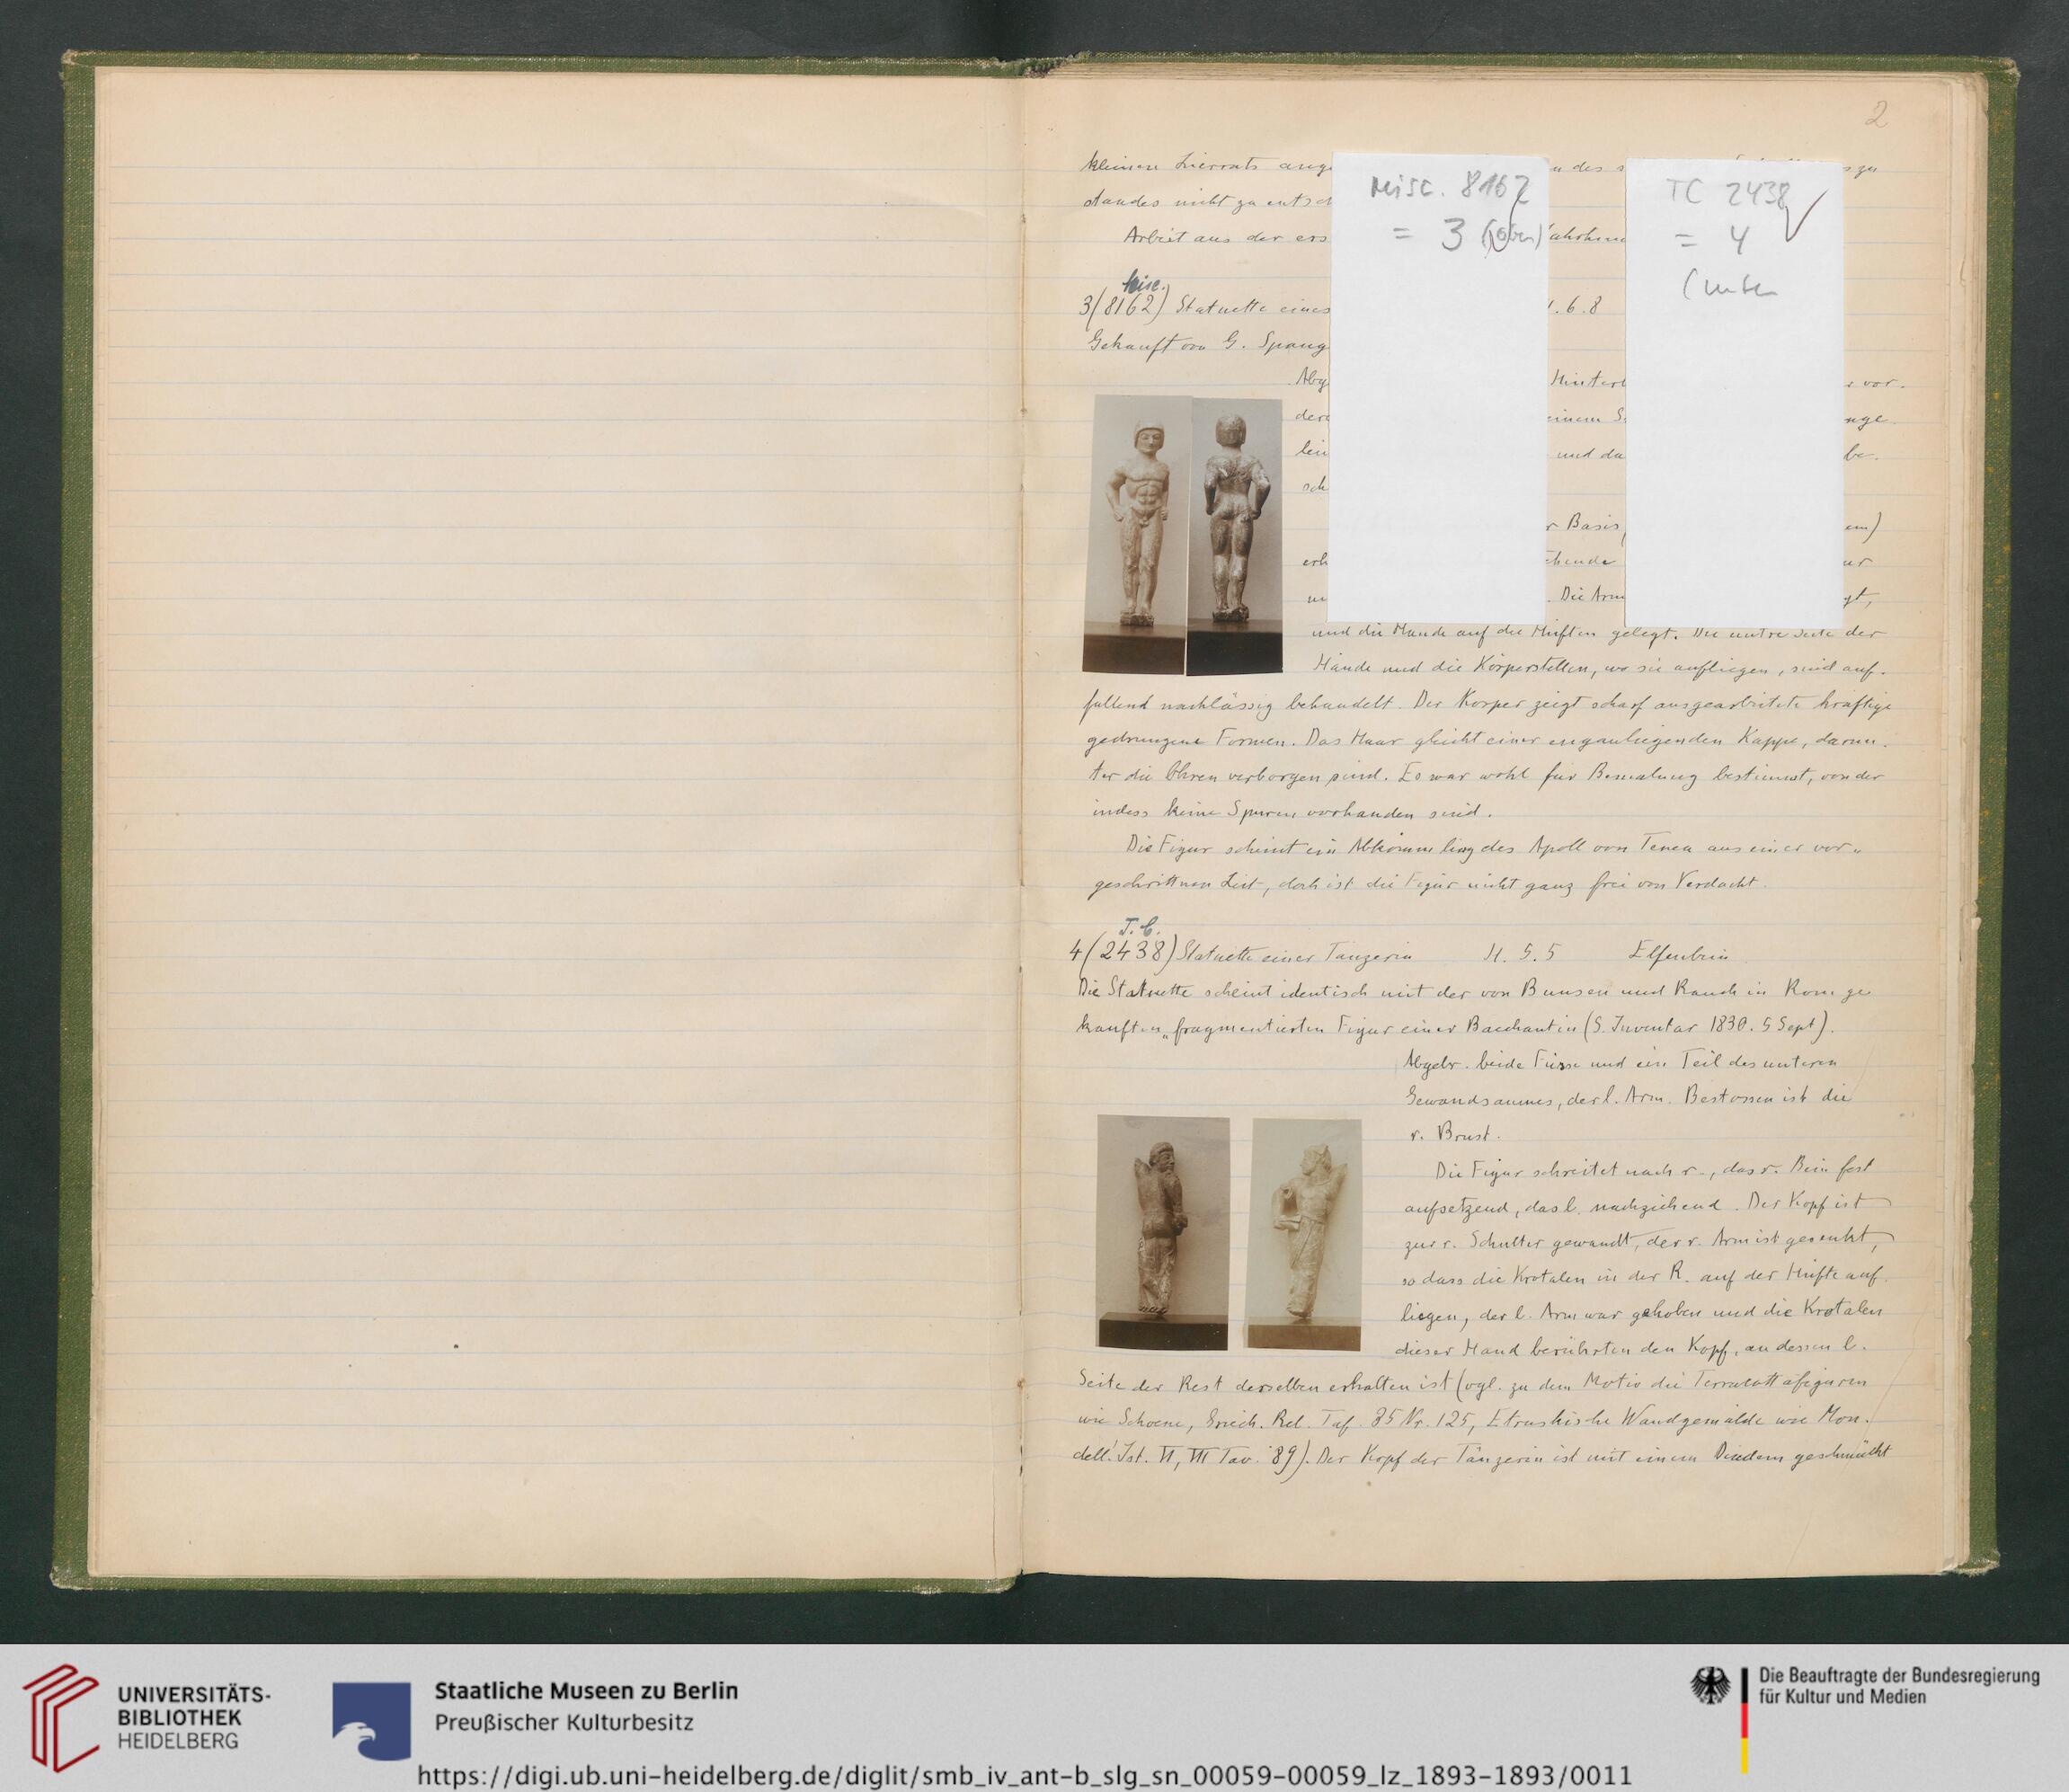 2
kleinen Zierrats ang
n des s
szu
standes nicht zu entsch
Arbeit aus der ers
ahrhun
Misc. 8162
= 3 (oben)
TC 2438
= 4
(unten
Misc.
3(8162) Statuette eines
1. 6.8
Gekauft von G. Spang
Abg
Hinterk
vor-
dere
einem S
nge-
lein
und da
be-
sch
r Basis
cm)
erh
ehende
ur
un
. Die Arm
gt,
und die Hände auf die Hüften gelegt. Die untre Seite der
Hände und die Körperstellen, wo sie aufliegen, sind auf-
fallend nachlässig behandelt. Der Körper zeigt scharf ausgearbeitete kräftige
gedrungene Formen. Das Haar gleicht einer enganliegenden Kappe, darun-
ter die Ohren verborgen sind. Es war wohl für Bemalung bestimmt, von der
indess keine Spuren vorhanden sind.
Die Figur scheint ein Abkömmling des Apoll von Tenea aus einer vor-
geschrittnen Zeit, doch ist die Figur nicht ganz frei von Verdacht.
T.C.
4(2438) Statuette einer Tänzerin H. 5.5 Elfenbein
Die Statuette scheint identisch mit der von Bunsen und Rauch in Rom ge-
kauften „fragmentierten Figur einer Bacchantin (S. Inventar 1830. 5 Sept).
Abgebr. beide Füsse und ein Teil des unteren
Gewandsaumes, der l. Arm. Bestossen ist die
r. Brust.
Die Figur schreitet nach r., das r. Bein fest
aufsetzend, das l. nachziehend. Der Kopf ist
zur r. Schulter gewandt, der r. Arm ist gesenkt,
so dass die Krotalen in der R. auf der Hüfte auf-
liegen, der l. Arm war gehoben und die Krotalen
dieser Hand berührten den Kopf, an dessen l.
Seite der Rest derselben erhalten ist (vgl. zu dem Motiv die Terracottafiguren
wie Schoene, Griech. Rel. Taf. 35 Nr. 125, Etruskische Wandgemälde wie Mon.
dell' Ist. VI, VII Tav. 89). Der Kopf der Tänzerin ist mit einem Diadem geschmückt
UNIVERSITÄTS-
BIBLIOTHEK
HEIDELBERG
Staatliche Museen zu Berlin
Preußischer Kulturbesitz
Die Beauftragte der Bundesregierung
für Kultur und Medien
https://digi.ub.uni-heidelberg.de/diglit/smb_iv_ant-b_slg_sn_00059-00059_lz_1893-1893/0011